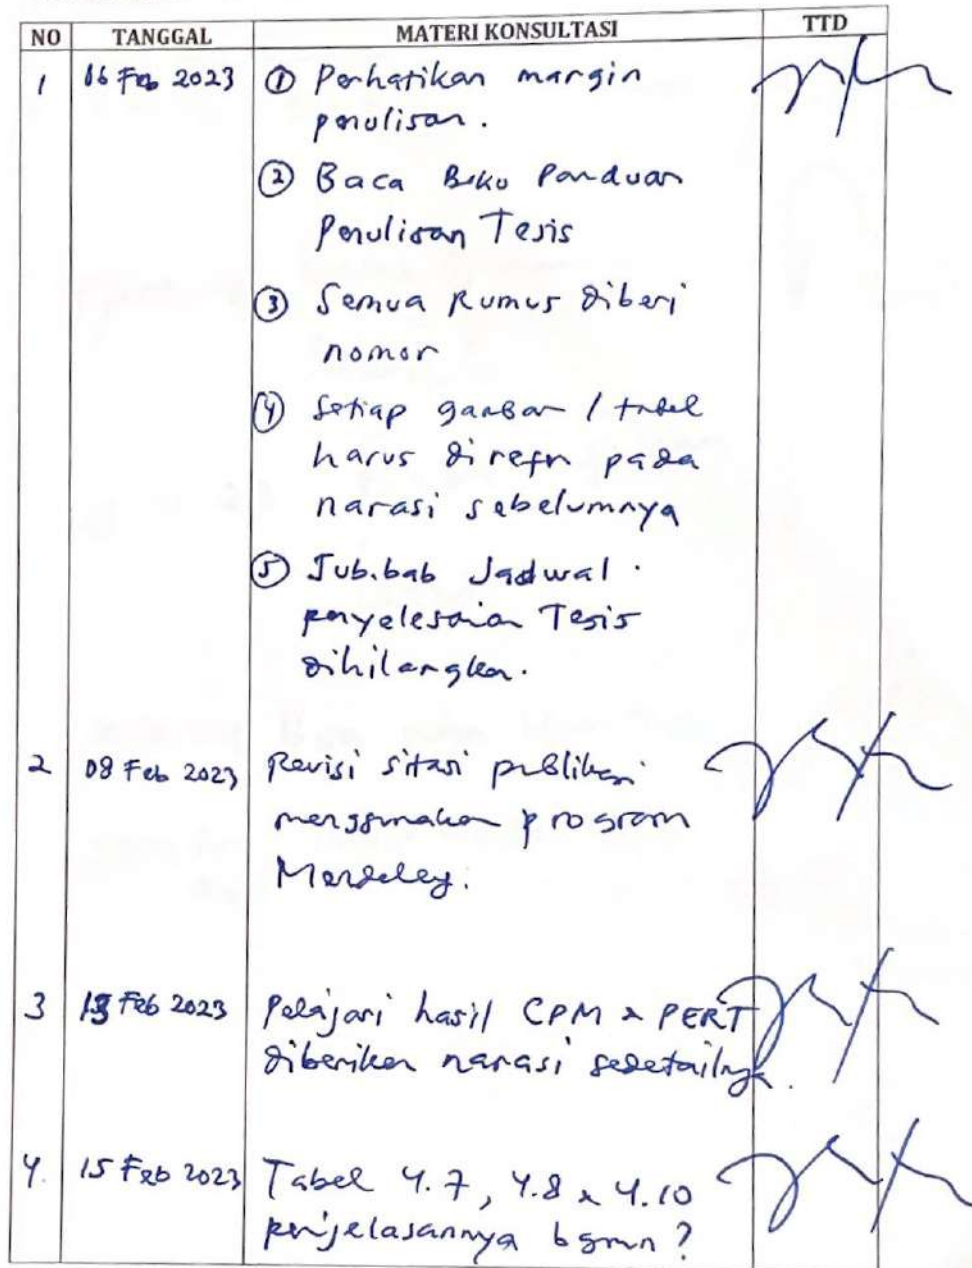 NO TANGGAL MATERI KONSULTASI TTD
1 06 Feb 2023 ① Perhatikan margin
penulisan.
② Baca Buku Panduan
Penulisan Tesis
③ Semua Rumus diberi
nomor
④ Setiap gambar / tabel
harus direfer pada
narasi sebelumnya
⑤ Sub.bab Jadwal
penyelesaian Tesis
dihilangkan.
2 08 Feb 2023 Revisi sitasi publikasi
menggunakan program
Mendeley.
3 13 Feb 2023 Pelajari hasil CPM & PERT
diberikan narasi sedetailnya.
4. 15 Feb 2023 Tabel 4.7, 4.8 & 4.10
penjelasannya bgmn?